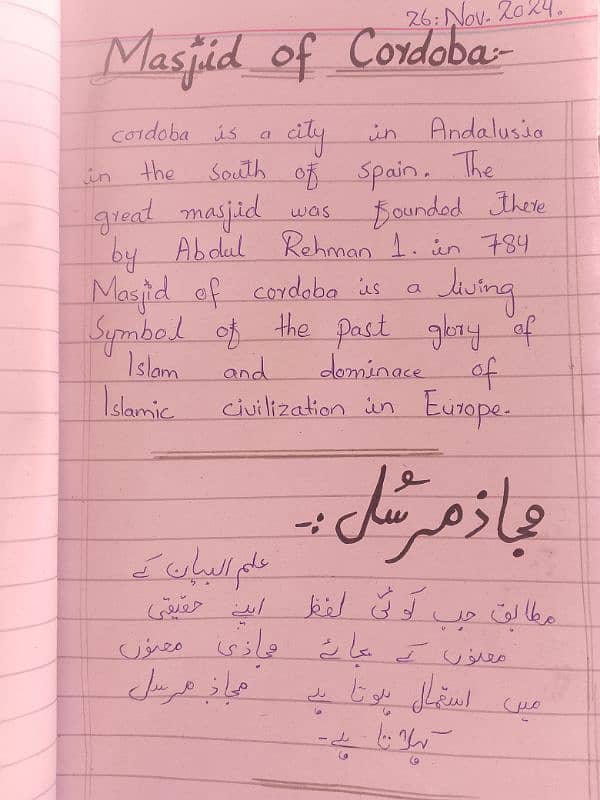 26: Nov. 2024.
Masjid of Cordoba:-
cordoba is a city in Andalusia
in the south of spain. The
great masjid was founded there
by Abdul Rehman 1. in 784
Masjid of cordoba is a living
Symbol of the past glory of
Islam and dominace of
Islamic civilization in Europe.
مجاذ مرسُل :-
علم البیان کے
مطابق جب کوئی لفظ اپنے حقیقی
معنوں کے بجائے مجاذی معنوں
میں استعمال ہوتا ہے مجاذ مرسل
کہلاتا ہے-